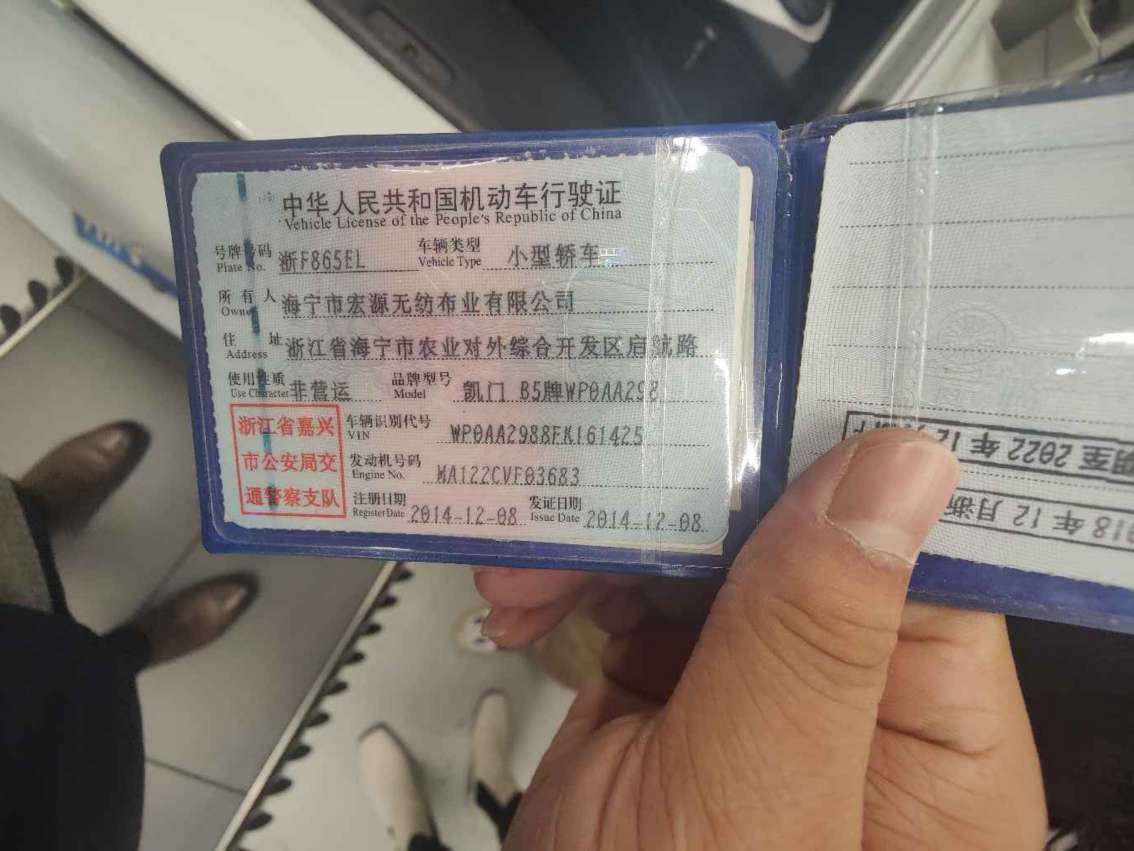 中华人民共和国机动车行驶证
Vehicle License of the People's Republic of China
号牌号码 浙F865EL 车辆类型 小型轿车
Plate No. Vehicle Type
所有人 海宁市宏源无纺布业有限公司
Owner
住址 浙江省海宁市农业对外综合开发区启航路
Address
使用性质 非营运 品牌型号 凯门 B5牌WP0AA298
Use Character Model
浙江省嘉兴
市公安局交
通警察支队
车辆识别代号 WP0AA2988FK161425
VIN
发动机号码 MA122CVF03683
Engine No.
注册日期 2014-12-08 发证日期 2014-12-08
Register Date Issue Date
期至2022年12月
018年12月浙